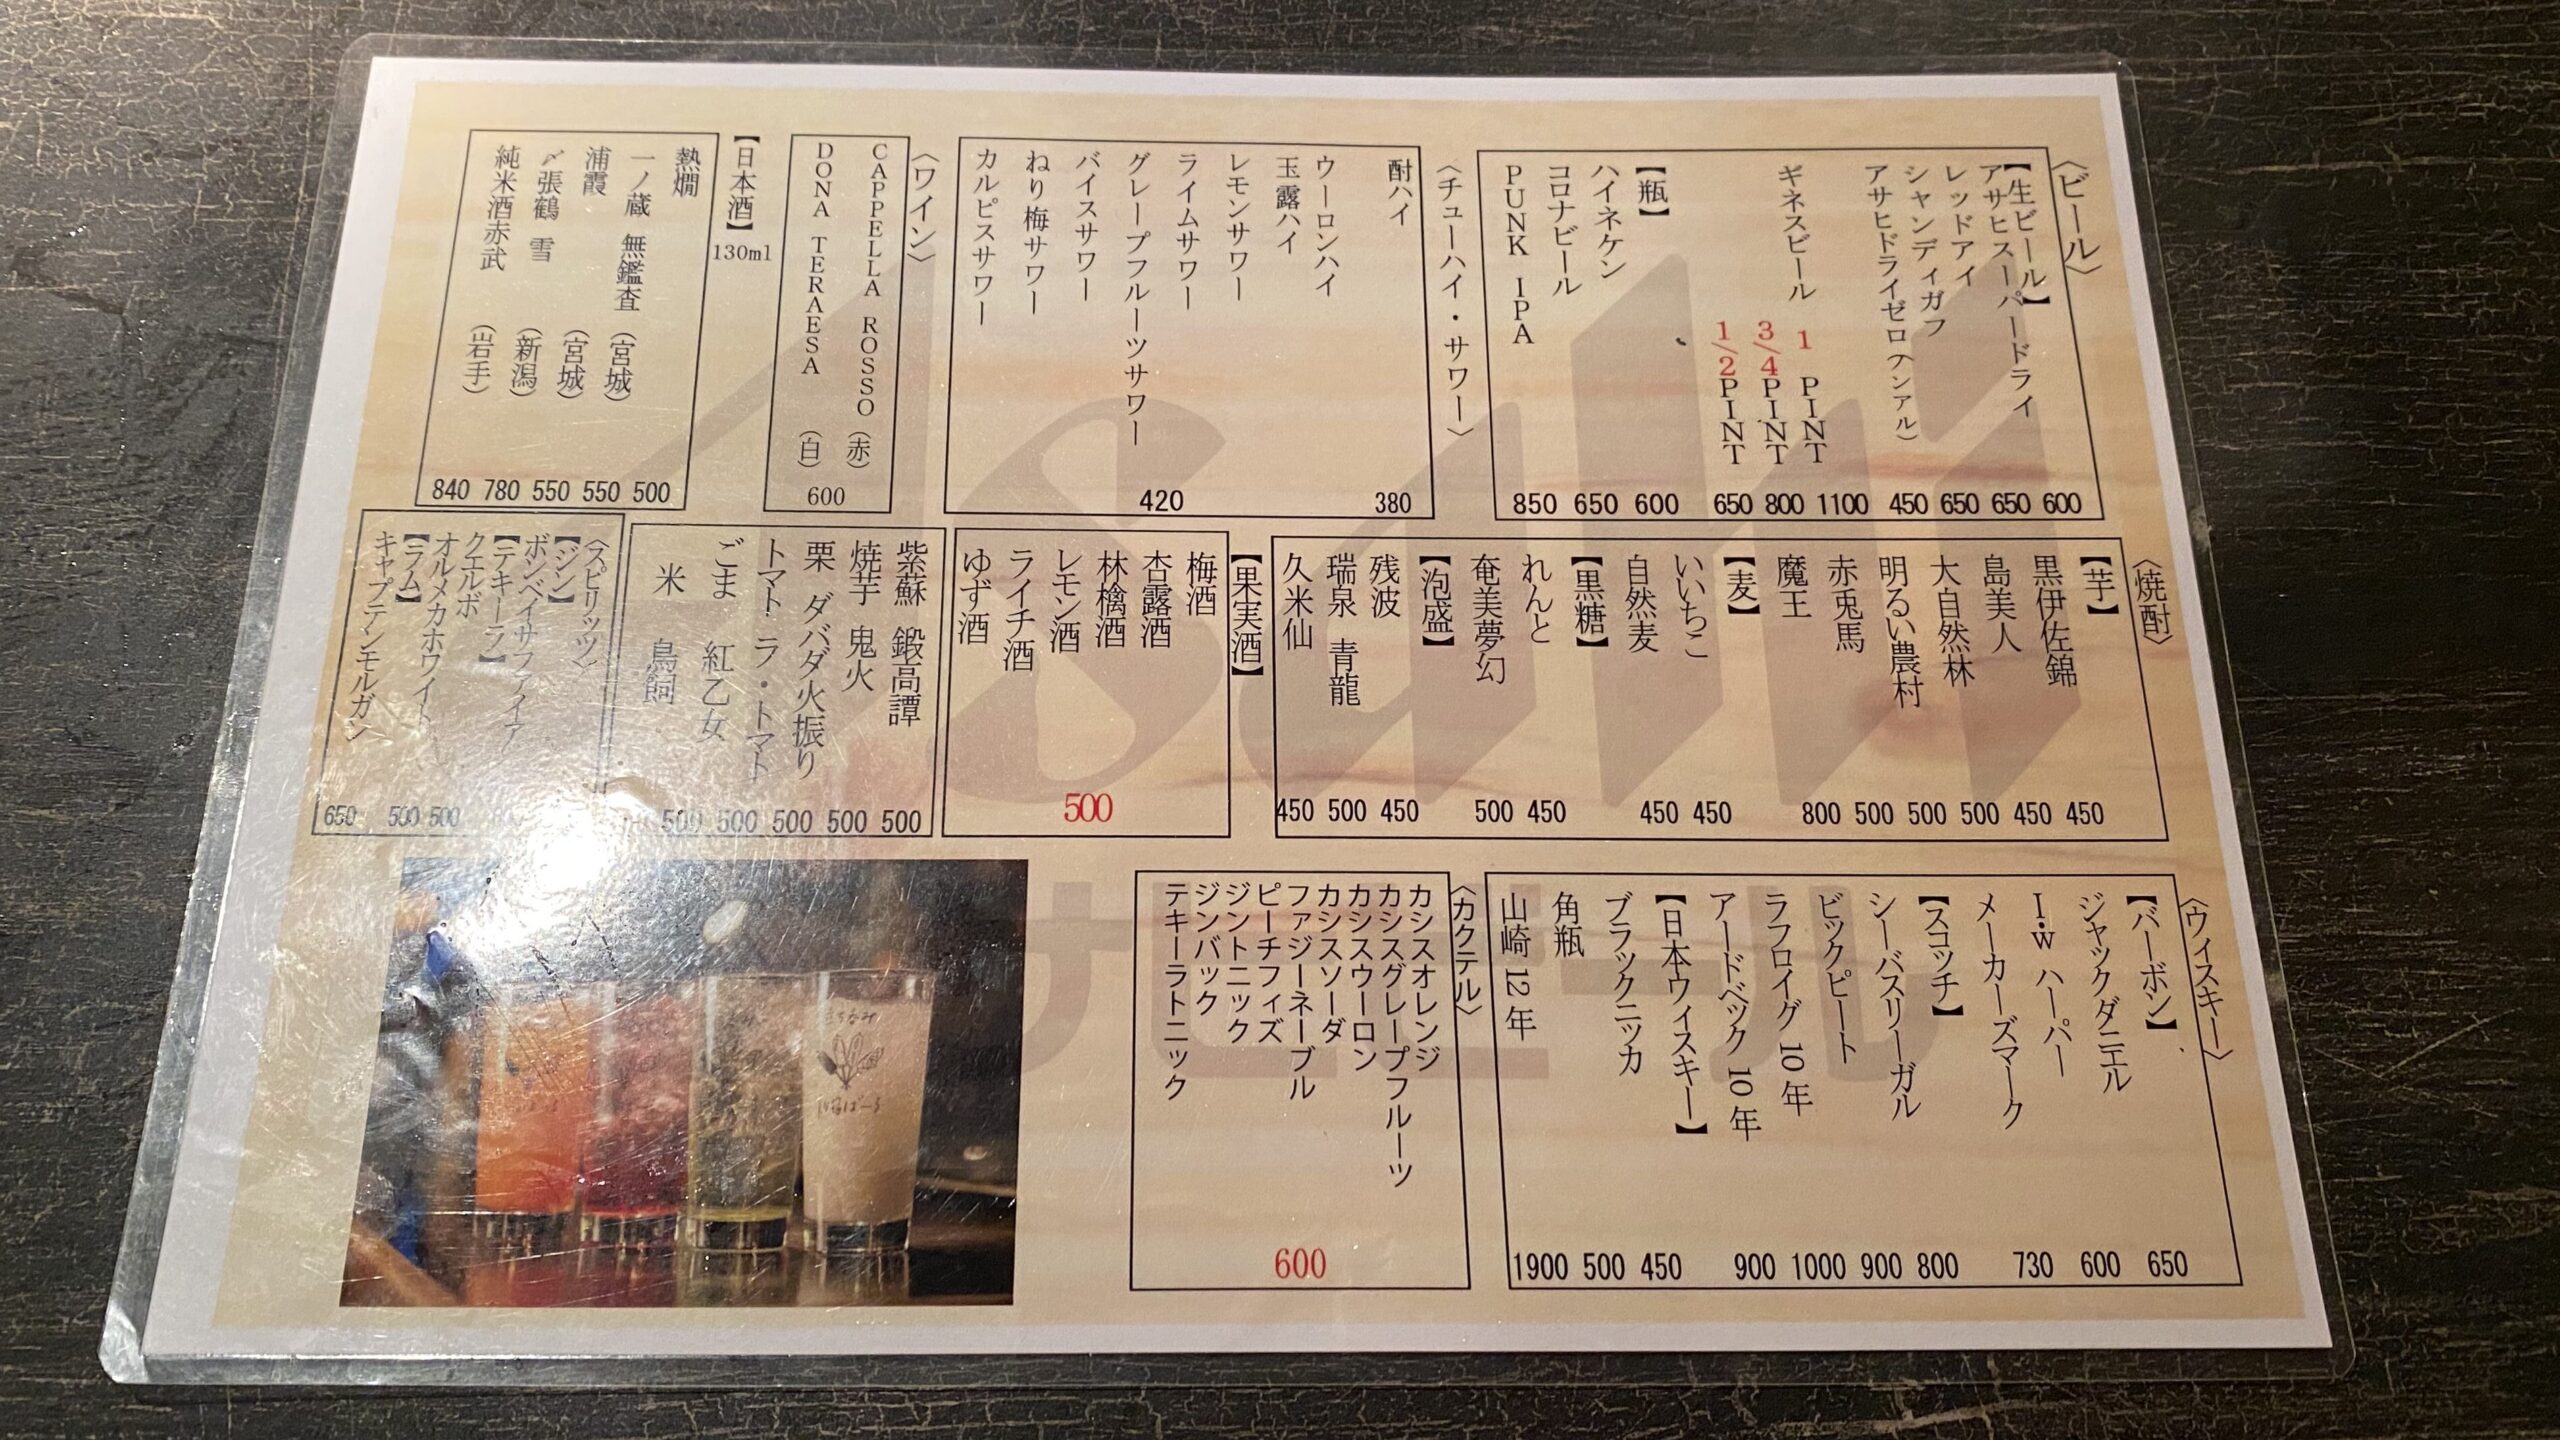 〈ビール〉
【生ビール】
アサヒスーパードライ 600
レッドアイ 650
シャンディガフ 650
アサヒドライゼロ(ノンアル) 450
ギネスビール
1 PINT 1100
3/4 PINT 800
1/2 PINT 650
【瓶】
ハイネケン 600
コロナビール 650
PUNK IPA 850
〈チューハイ・サワー〉
酎ハイ 380
ウーロンハイ
玉露ハイ
レモンサワー
ライムサワー
グレープフルーツサワー
バイスサワー
ねり梅サワー
カルピスサワー
420
〈ワイン〉
CAPPELLA ROSSO(赤)
DONA TERAESA (白)
600
【日本酒】130ml
熱燗 500
一ノ蔵 無鑑査 (宮城) 550
浦霞 (宮城) 550
〆張鶴 雪 (新潟) 780
純米酒赤武 (岩手) 840
〈焼酎〉
【芋】
黒伊佐錦 450
島美人 450
大自然林 500
明るい農村 500
赤兎馬 500
魔王 800
【麦】
いいちこ 450
自然麦 450
【黒糖】
れんと 450
奄美夢幻 500
【泡盛】
残波 450
瑞泉 青龍 500
久米仙 450
【果実酒】
梅酒
杏露酒
林檎酒
レモン酒
ライチ酒
ゆず酒
500
紫蘇 鍛高譚 500
焼芋 鬼火 500
栗 ダバダ火振り 500
トマト ラ・トマト 500
ごま 紅乙女 500
米 鳥飼
〈スピリッツ〉
【ジン】
ボンベイサファイア
【テキーラ】
クエルボ 500
オルメカホワイト 500
【ラム】
キャプテンモルガン 650
〈ウィスキー〉
【バーボン】
ジャックダニエル 650
I.W ハーパー 600
メーカーズマーク 730
【スコッチ】
シーバスリーガル 800
ビックピート 900
ラフロイグ 10年 1000
アードベック 10年 900
【日本ウィスキー】
ブラックニッカ 450
角瓶 500
山崎 12年 1900
〈カクテル〉
カシスオレンジ
カシスグレープフルーツ
カシスウーロン
カシスソーダ
ファジーネーブル
ピーチフィズ
ジントニック
ジンバック
テキーラトニック
600
Asahi